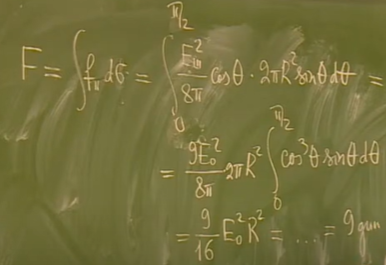 F = ∫ f_п dσ = ∫_0^{π/2} E_{in}^2/8π cosθ · 2πR^2 sinθ dθ =
= 9E_0^2/8π 2πR^2 ∫_0^{π/2} cos^3θ sinθ dθ
= 9/16 E_0^2 R^2 = ... = 9 дин